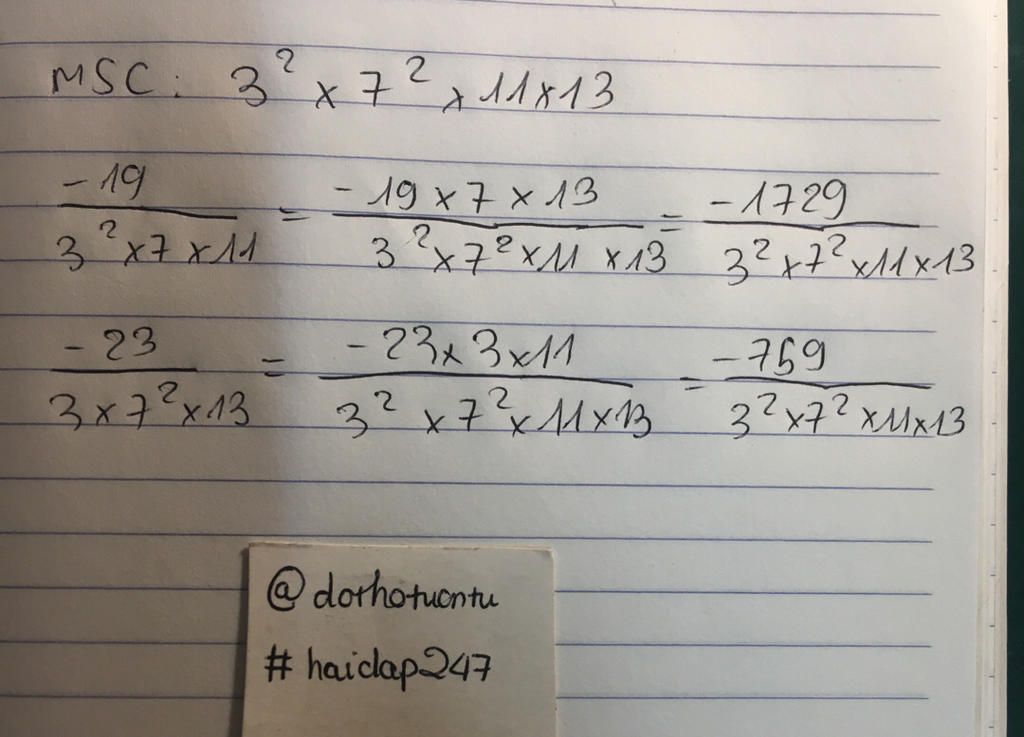 MSC: 3² × 7² × 11×13
-19 / 3²×7×11 = -19×7×13 / 3²×7²×11×13 = -1729 / 3²×7²×11×13
-23 / 3×7²×13 = -23×3×11 / 3²×7²×11×13 = -759 / 3²×7²×11×13
@dorhotuontu
#haidap247